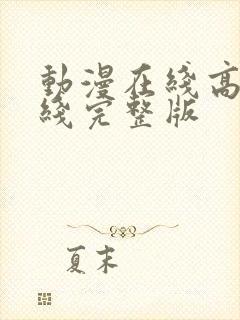 動漫在綫高
綫完整版
夏末